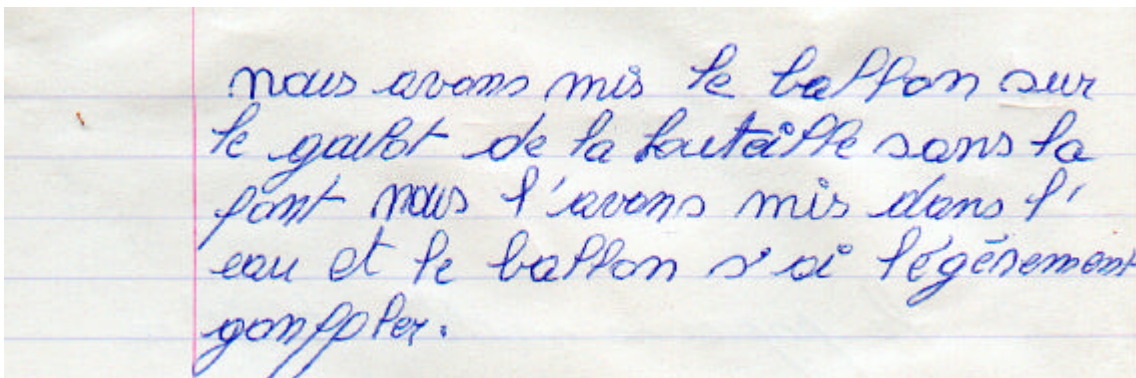 nous avons mis le ballon sur
le goulot de la bouteille sans la
font nous l'avons mis dans l'
eau et le ballon s'ai légérement
gonffler.